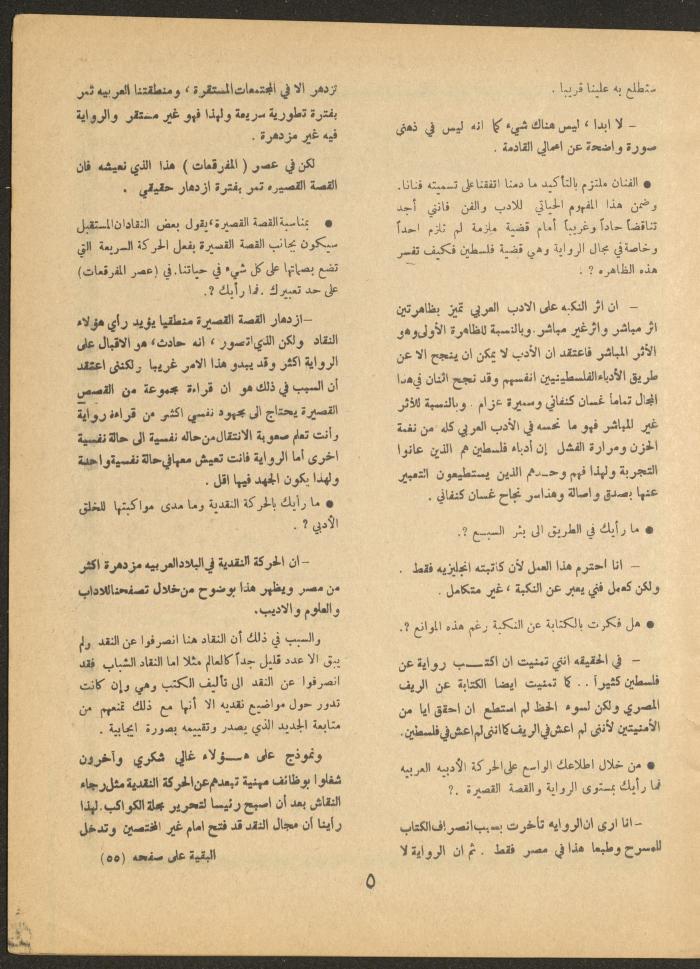 ستطلع به علينا قريبا .
– لا ابدا ، ليس هناك شيء كما انه ليس في ذهني
صورة واضحة عن اعمالي القادمة .
● الفنان ملتزم بالتأكيد ما دمنا اتفقنا على تسميته فنانا.
وضمن هذا المفهوم الحياتي للادب والفن فانني أجد
تناقضاً حاداً وغريباً أمام قضية ملزمة لم تلزم احداً
وخاصة في مجال الرواية وهي قضية فلسطين فكيف تفسر
هذه الظاهره ? .
– ان اثر النكبه على الادب العربي تميز بظاهرتين
اثر مباشر واثر غير مباشر. وبالنسبة للظاهرة الأولى وهو
الأثر المباشر فاعتقد ان الأدب لا يمكن ان ينجح الا عن
طريق الأدباء الفلسطينيين انفسهم وقد نجح اثنان في هذا
المجال تماماً غسان كنفاني وسميرة عزام . وبالنسبة للأثر
غير المباشر فهو ما نحسه في الأدب العربي كله من نغمة
الحزن ومرارة الفشل إن أدباء فلسطين هم الذين عانوا
التجربة ولهذا فهم وحدهم الذين يستطيعون التعبير
عنها بصدق واصالة وهذا سر نجاح غسان كنفاني .
● ما رأيك في الطريق الى بئر السبع ?.
– انا احترم هذا العمل لأن كاتبته انجليزيه فقط .
ولكن كعمل فني يعبر عن النكبة ، غير متكامل .
● هل فكرت بالكتابة عن النكبة رغم هذه الموانع ?.
– في الحقيقه انني تمنيت ان اكتب رواية عن
فلسطين كثيراً . . كما تمنيت ايضا الكتابة عن الريف
المصري ولكن لسوء الحظ لم استطع ان احقق ايا من
الأمنيتين لأنني لم اعش في الريف كما انني لم اعش في فلسطين.
● من خلال اطلاعك الواسع على الحركة الأدبيه العربيه
فما رأيك بمستوى الرواية والقصة القصيرة .?
– انا ارى ان الروايه تأخرت بسبب انصراف الكتاب
للمسرح وطبعا هذا في مصر فقط . ثم ان الرواية لا
تزدهر الا في المجتمعات المستقرة ، ومنطقتنا العربيه تمر
بفترة تطورية سريعة ولهذا فهو غير مستقر والرواية
فيه غير مزدهرة .
لكن في عصر ( المفرقعات ) هذا الذي نعيشه فان
القصة القصيره تمر بفترة ازدهار حقيقي .
● بمناسبة القصة القصيرة ، يقول بعض النقاد ان المستقبل
سيكون بجانب القصة القصيرة بفعل الحركة السريعة التي
تضع بصماتها على كل شيء في حياتنا. في (عصر المفرقعات)
على حد تعبيرك . فما رأيك ?.
– ازدهار القصة القصيرة منطقيا يؤيد رأي هؤلاء
النقاد ولكن الذي اتصور ، انه حادث، هو الاقبال على
الرواية اكثر وقد يبدو هذا الامر غريبا ولكنني اعتقد
أن السبب في ذلك هو ان قراءة مجموعة من القصص
القصيرة يحتاج الى مجهود نفسي اكثر من قراءة رواية
وأنت تعلم صعوبة الانتقال من حاله نفسية الى حالة نفسية
اخرى أما الرواية فانت تعيش معها في حالة نفسية واحدة
ولهذا يكون الجهد فيها اقل .
● ما رأيك بالحركة النقدية وما مدى مواكبتها للخلق
الأدبي ? .
– ان الحركة النقدية في البلاد العربيه مزدهرة اكثر
من مصر ويظهر هذا بوضوح من خلال تصفحنا للاداب
والعلوم والاديب.
والسبب في ذلك أن النقاد هنا انصرفوا عن النقد ولم
يبق الا عدد قليل جداً كالعالم مثلا اما النقاد الشباب فقد
انصرفوا عن النقد الى تأليف الكتب وهي وإن كانت
تدور حول مواضيع نقديه الا أنها مع ذلك تمنعهم من
متابعة الجديد الذي يصدر وتقييمه بصورة ايجابية .
ونموذج على هؤلاء غالي شكري وآخرون
شغلوا بوظائف مهنية تبعدهم عن الحركة النقدية مثل رجاء
النقاش بعد أن اصبح رئيسا لتحرير مجلة الكواكب. لهذا
رأينا أن مجال النقد قد فتح امام غير المختصين وتدخل
البقية على صفحه (٥٥)
٥